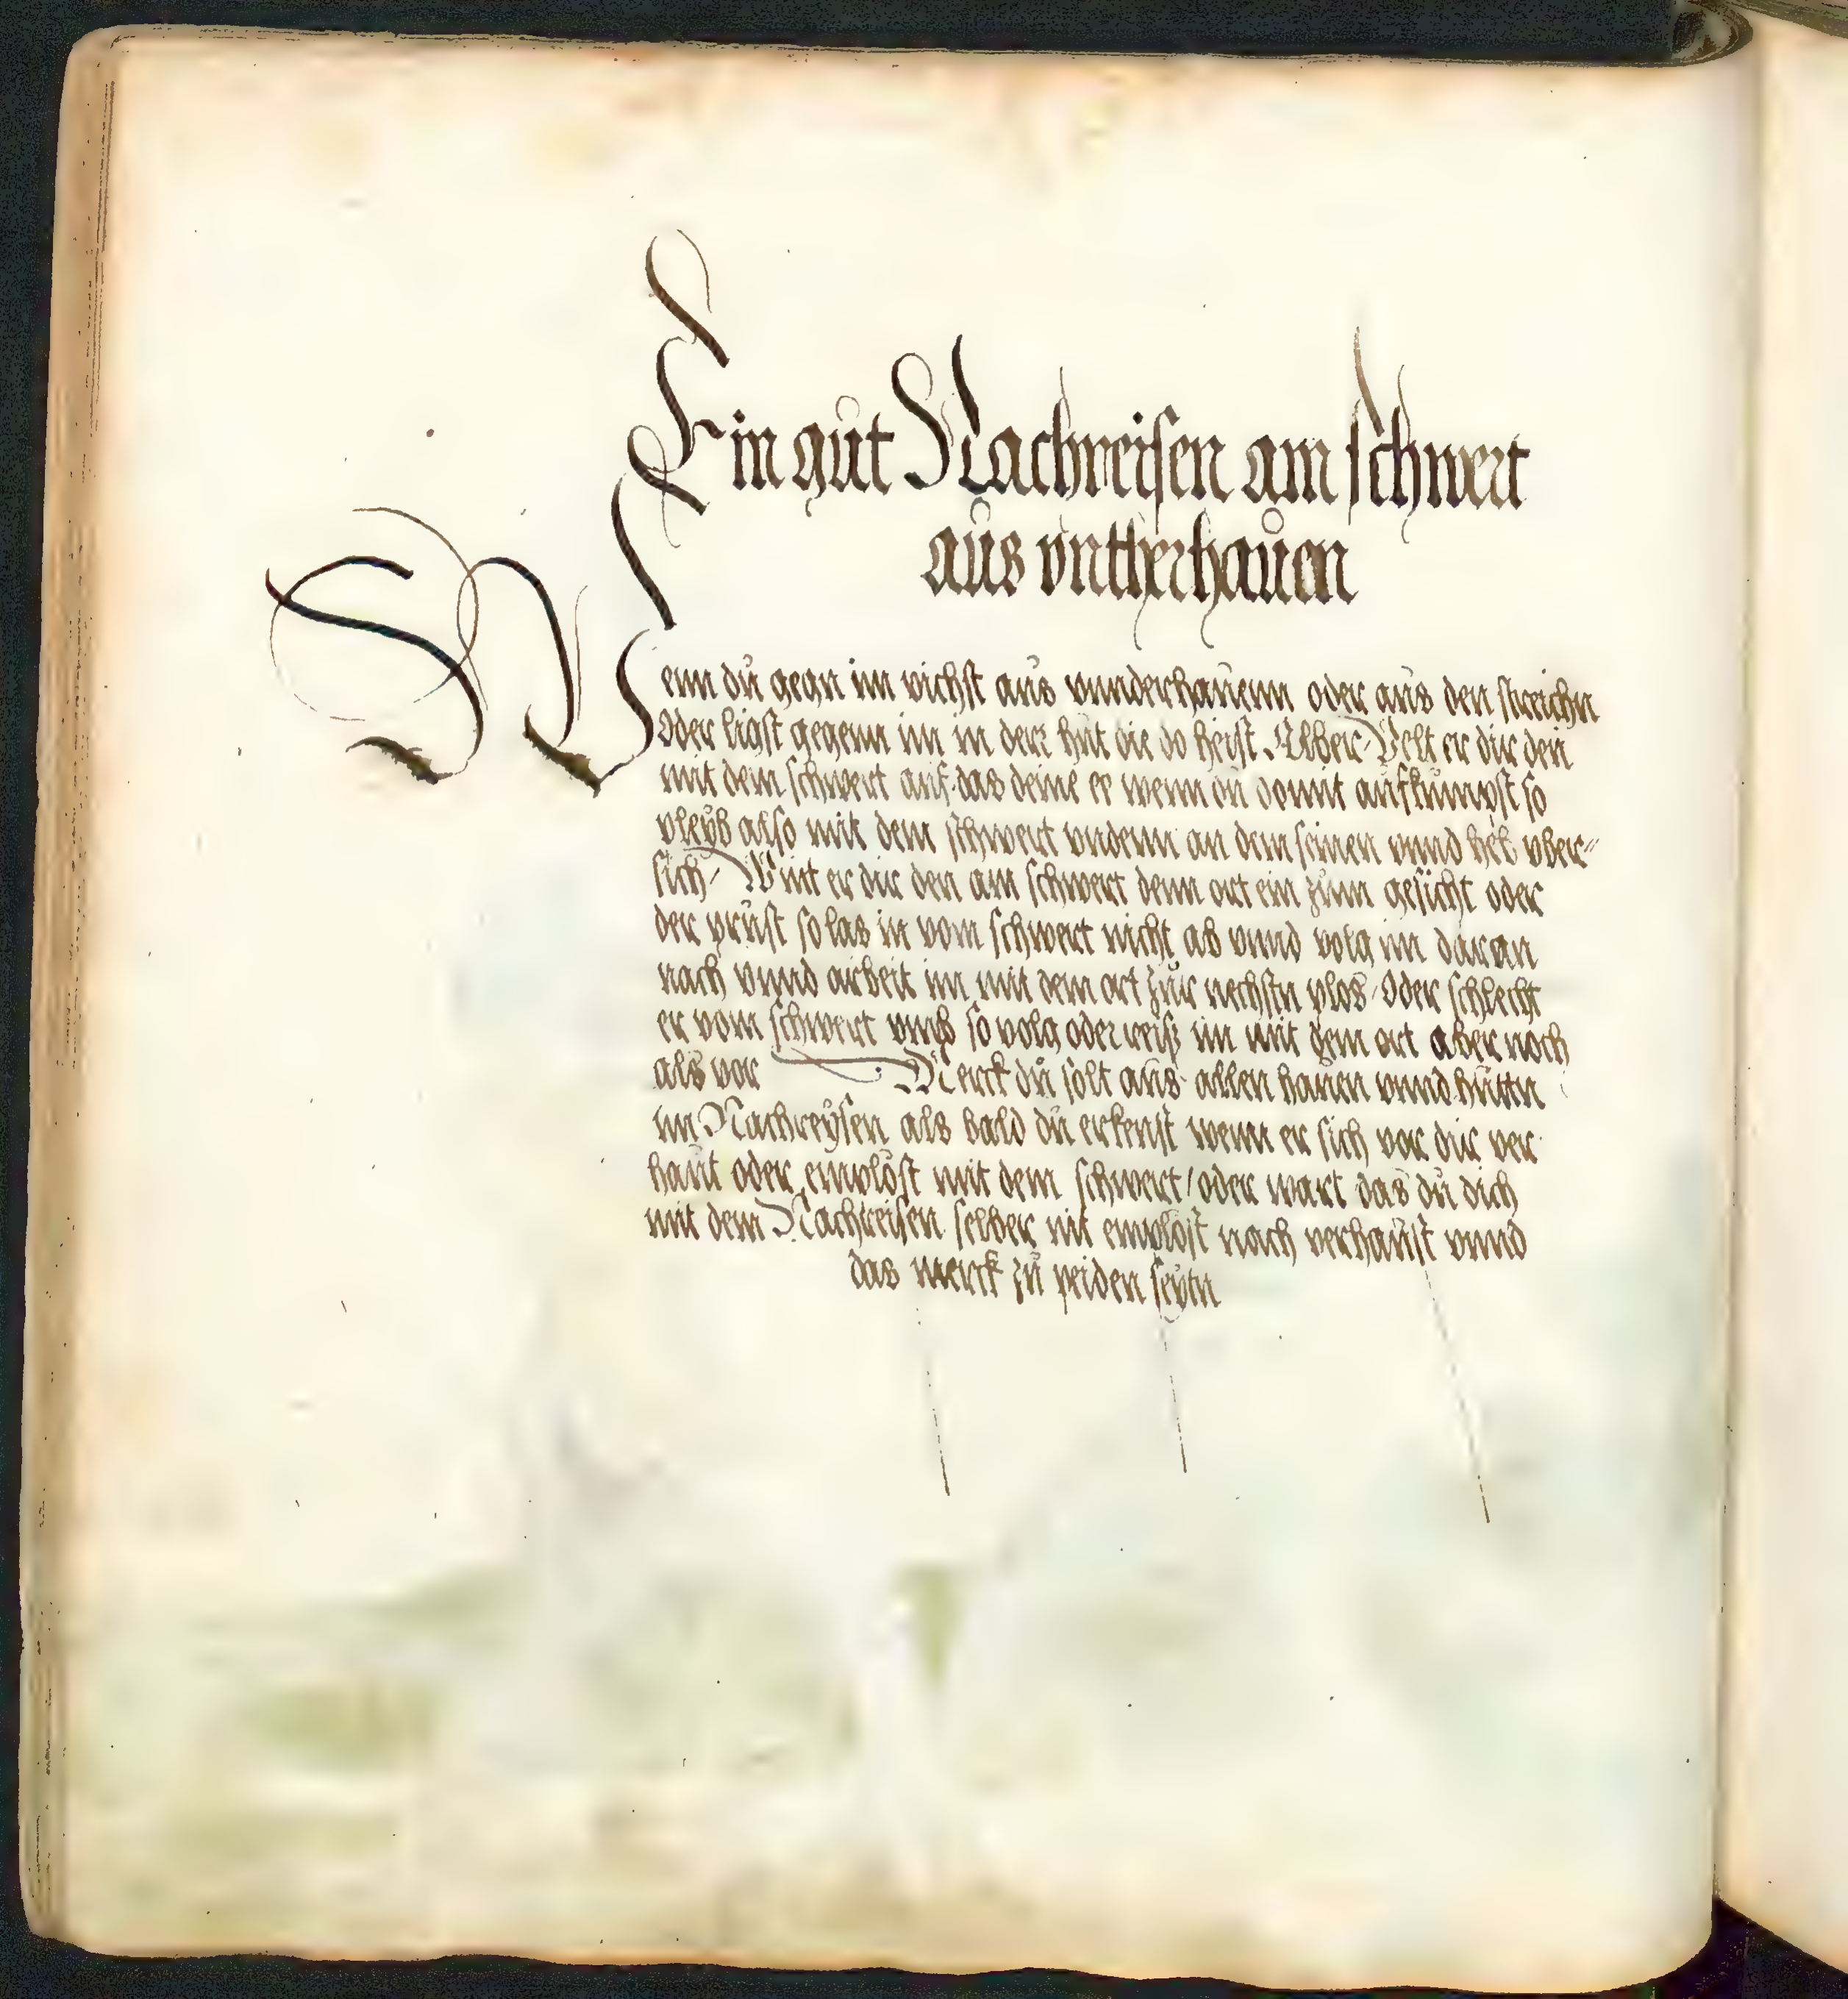 Ein gut Nachreisen am schwert
aus vntherhauen
Wenn du gegn im vichst aus vnnderhauenn oder aus den streichn
Oder ligst gegenn im in derr hut die do heist Alber Velt er dir den
mit dem schwert auf das deine er wenn du domit aufkumpst so
pleyb also mit dem schwert vndenn an dem seinen vnnd heb vber-
sich Wint er dir den am schwert denn ort ein zum gesicht oder
der prust so las in vom schwert nicht ab vnnd volg im daran
nach vnnd arbeit im mit dem ort zur nechstn plos Oder schlecht
er vom schwert vmb so volg oder reiß im mit dem ort aber noch
als vor Merck du solt aus allen hauen vnnd huttn
im Nachreysen als bald du erkenst wenn er sich vor dir ver
haut oder emplost mit dem schwert / oder wart das du dich
mit dem Nachreisen selber nit emplost nach verhaust vnnd
das merck zu peiden seytn